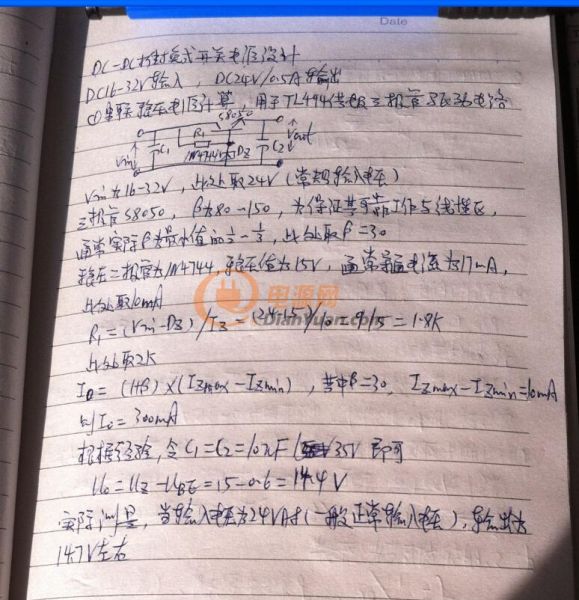 Date
DC-DC推挽式开关电源设计
DC16-32V输入,DC24V/0.5A输出
①串联稳压电源计算,用于TL494供电及三极管驱动电路
S8050
R1
Vin
C1
1N4744
DZ
C2
Vout
Vin为16-32V,此处取24V(常规输入电压)
三极管S8050,β为80-150,为保证其可靠工作与线性区,
通常实际β为最小值的1/2-1/3,此处取β=30
稳压二极管为1N4744,稳压值为15V,通常额定电流为17mA,
此处取10mA
电源网
DianYuan.com
R1=(Vin-DZ)/IZ=(24-15)/10=9/5=1.8K
此处取2K
I0=(1+β)×(IZmax-IZmin),其中β=30,IZmax-IZmin=10mA
则I0=300mA
根据经验,令C1=C2=10uF/35V即可
U0=UZ-UBE=15-0.6=14.4V
实际测量,当输入电压为24V时(一般正常输入电压),输出为
14.7V左右